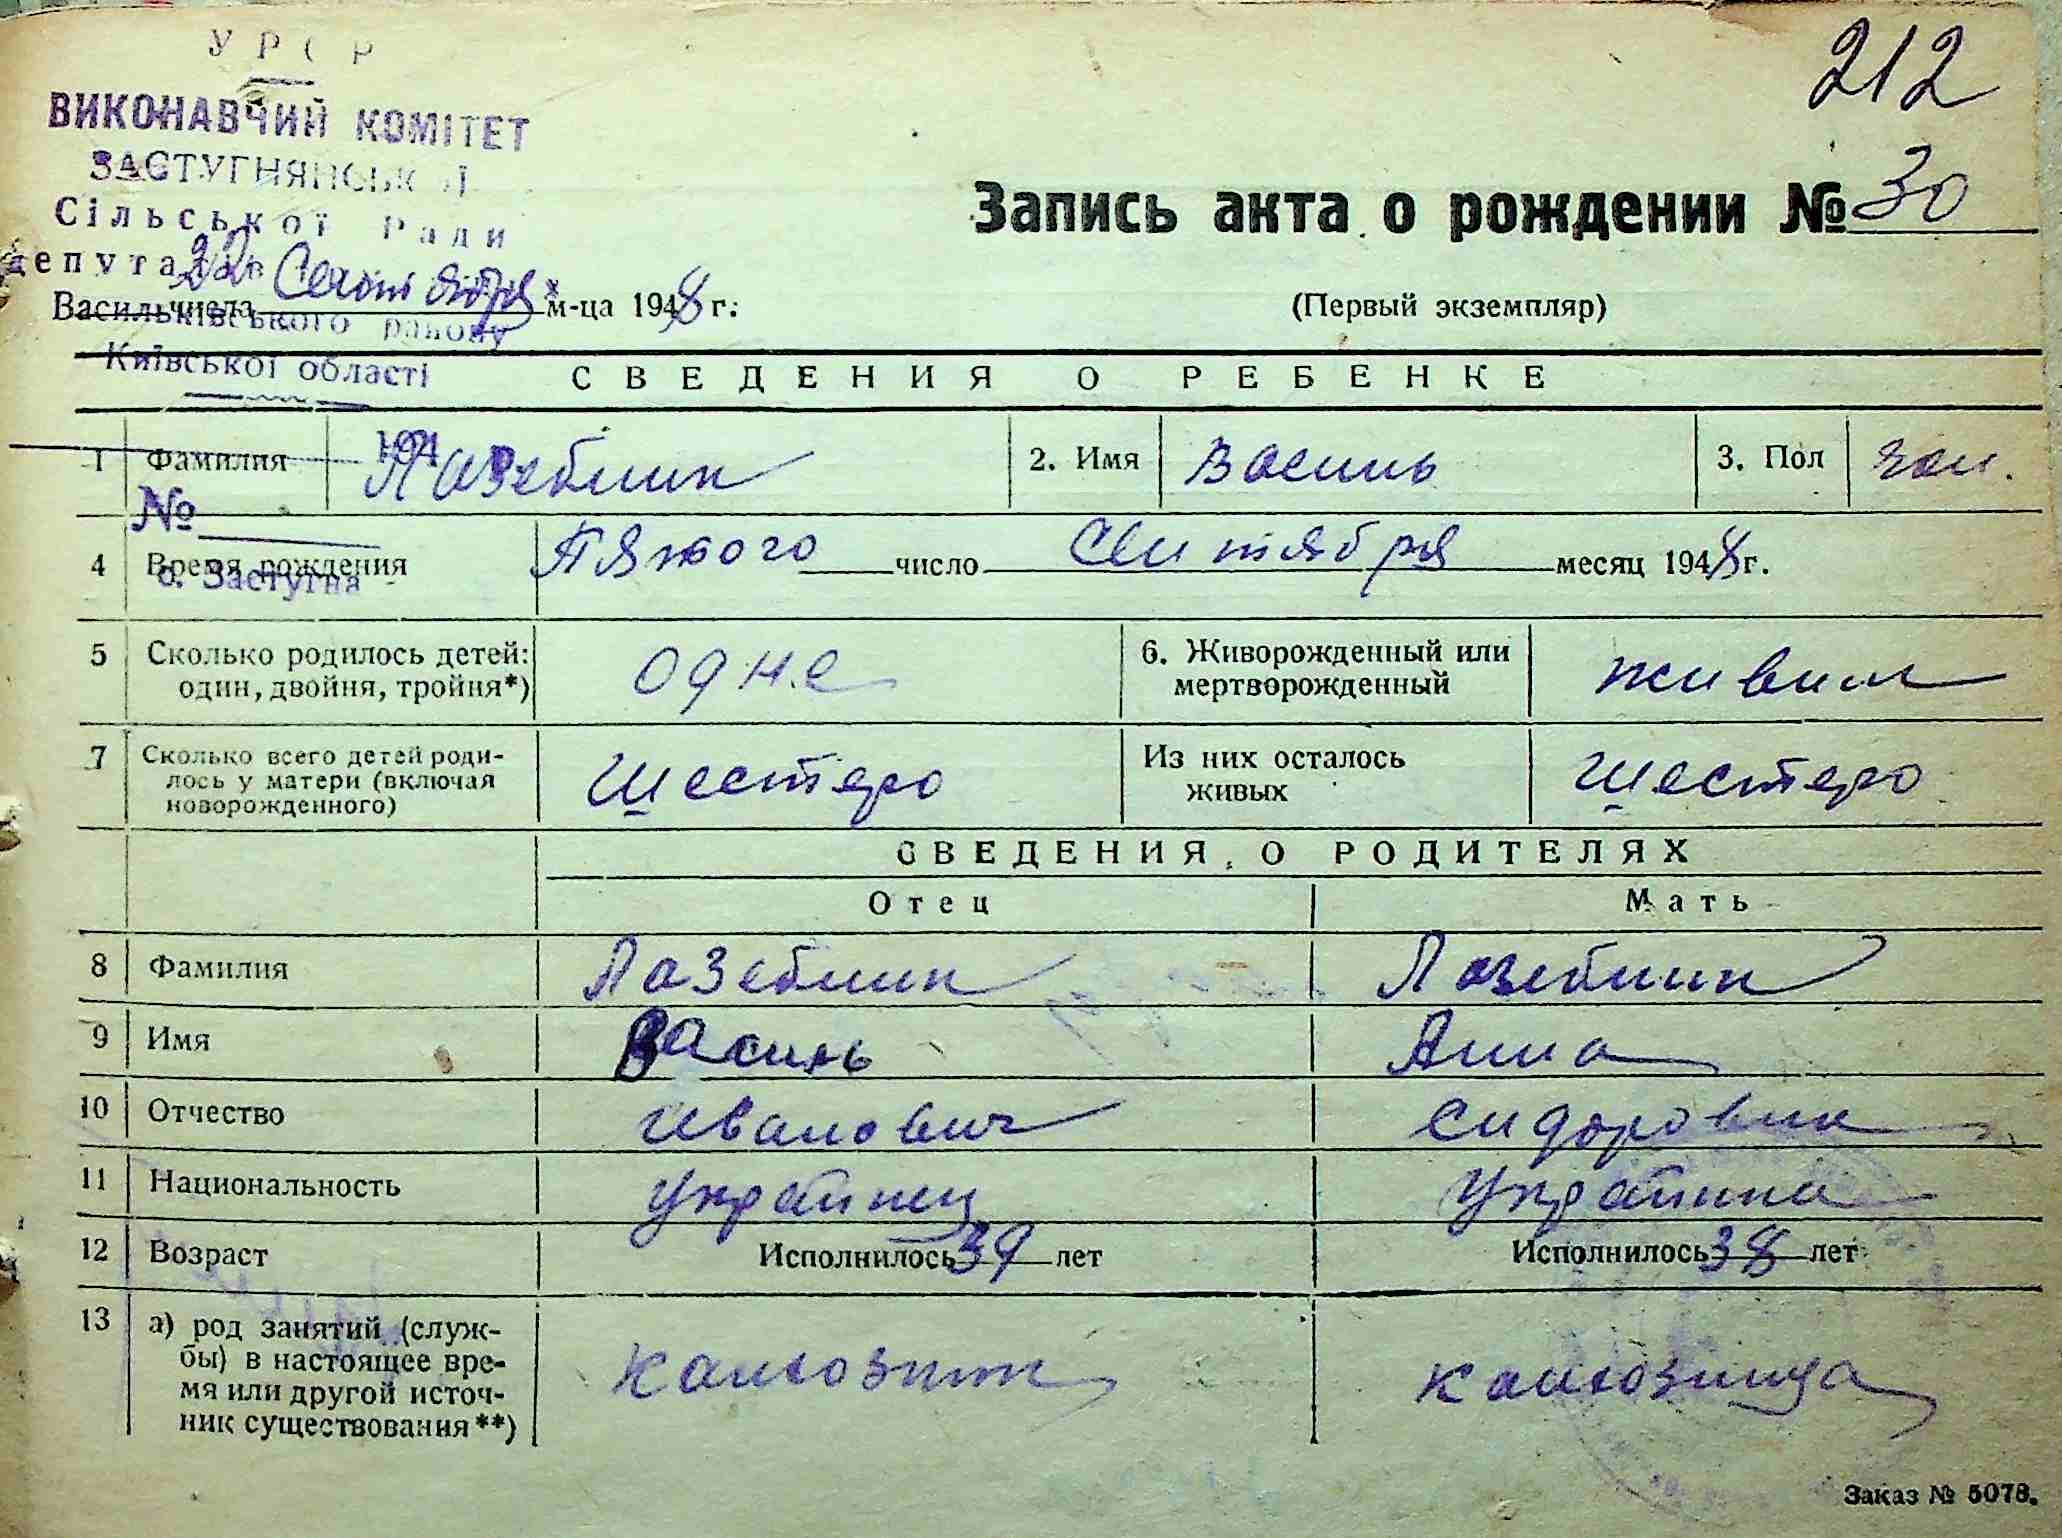 212
УРСР
ВИКОНАВЧИЙ КОМІТЕТ
ЗАСТУГНЯНСЬКОЇ
Сільської Ради
депутатів
Васильківського району
Київської області
194 р.
№
с. Застугна
Запись акта о рождении № 30
22 числа Сентября м-ца 1948 г.
(Первый экземпляр)
СВЕДЕНИЯ О РЕБЕНКЕ
1 Фамилия Лазебник 2. Имя Василь 3. Пол чол.
4 Время рождения Пятого число Сентября месяц 1948 г.
5 Сколько родилось детей: один, двойня, тройня*) одне 6. Живорожденный или мертворожденный живим
7 Сколько всего детей родилось у матери (включая новорожденного) шестеро Из них осталось живых шестеро
СВЕДЕНИЯ О РОДИТЕЛЯХ
Отец Мать
8 Фамилия Лазебник Лазебник
9 Имя Василь Анна
10 Отчество Иванович Сидоровна
11 Национальность Українец Українка
12 Возраст Исполнилось 39 лет Исполнилось 38 лет
13 а) род занятий (служ-
бы) в настоящее вре-
мя или другой источ-
ник существования**) колхозник колхозница
Заказ № 5078.